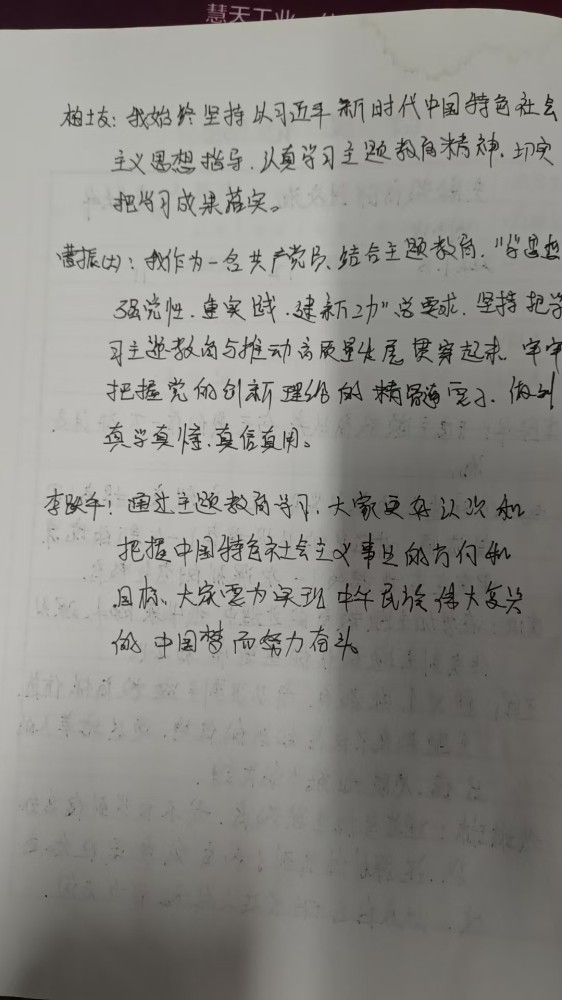 慧天工业
柏士友：我始终坚持以习近平新时代中国特色社会
主义思想指导，认真学习主题教育精神，切实
把学习成果落实。
曹振（女）：我作为一名共产党员，结合主题教育，“学思想
强党性，重实践，建新功”总要求，坚持把学
习主题教育与推动高质量发展贯穿起来，牢牢
把握党的创新理论的精髓要义，做到
真学真懂，真信真用。
李跃年：通过主题教育学习，大家更好认识和
把握中国特色社会主义事业的方向和
目标，大家要为实现中华民族伟大复兴
的中国梦而努力奋斗。